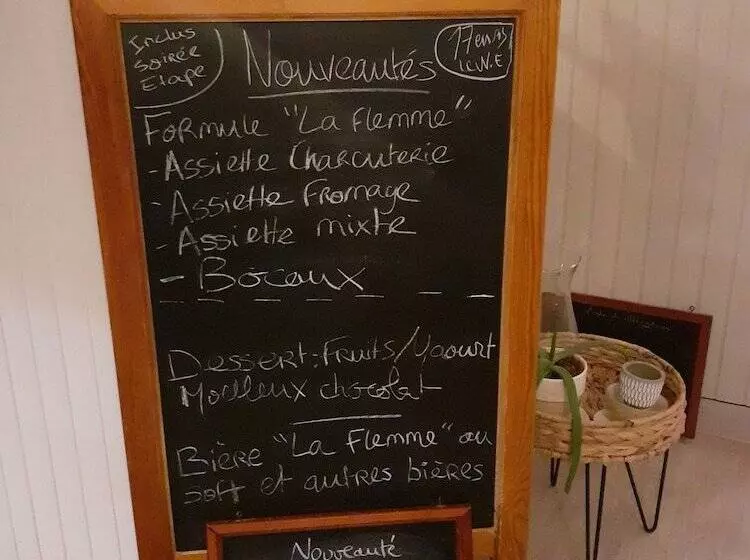 Inclus
Soirée
Etape
Nouveautés
17 euros
le W.E
Formule "La Flemme"
- Assiette Charcuterie
- Assiette Fromage
- Assiette mixte
- Bocaux
Dessert: Fruits/Yaourt
Moelleux chocolat
Bière "La Flemme" ou
soft et autres bières
Nouveauté